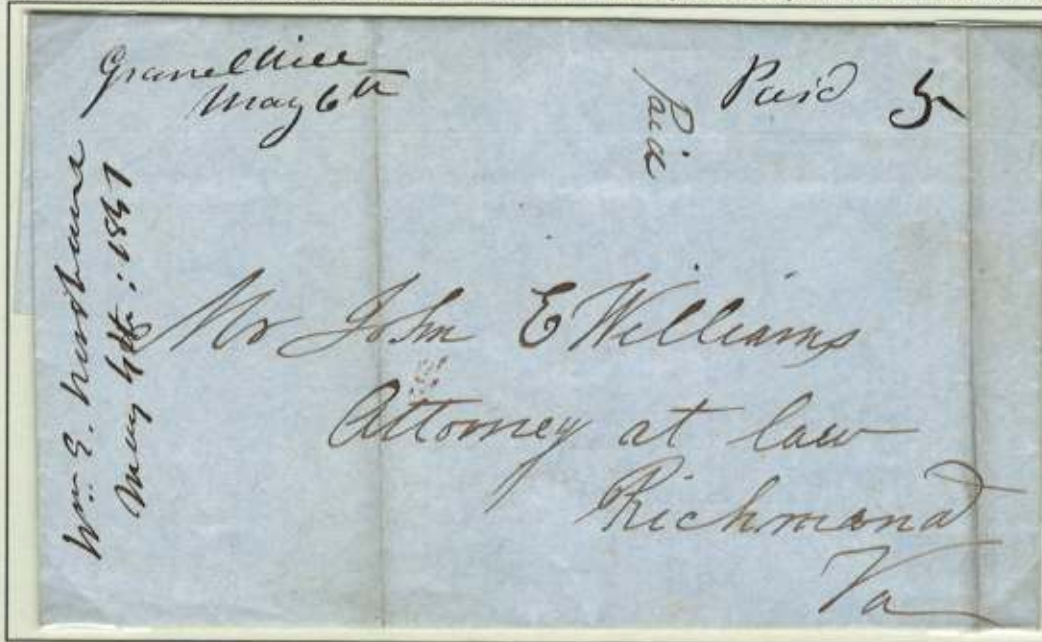 Gravel Hill
May 6th
Paid 5
Paid
Wm. E.
May 4th : 1847
Mr John E Williams
Attorney at law
Richmond
Va